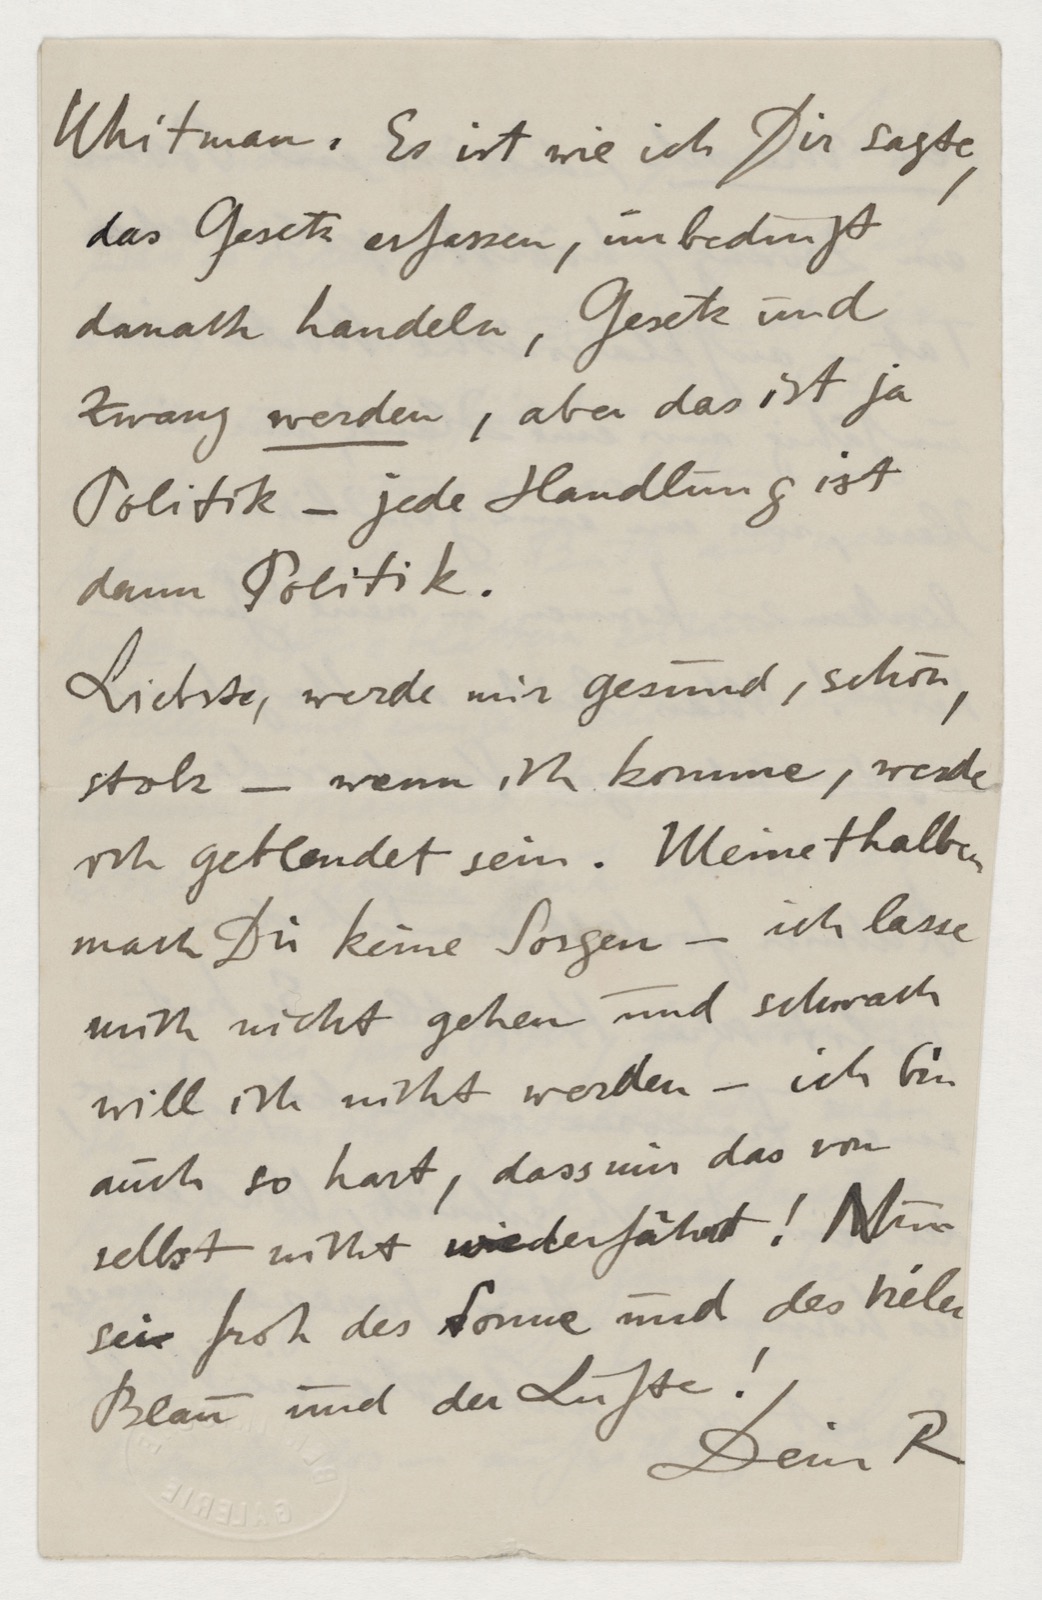 Whitman. Es ist wie ich Dir sagte,
das Gesetz erfassen, unbedingt
danach handeln, Gesetz und
Zwang werden, aber das ist ja
Politik – jede Handlung ist
dann Politik.
Liebste, werde mir gesund, schön,
stolz – wenn ich komme, werde
ich geblendet sein. Meinethalben
mach Dir keine Sorgen – ich lasse
mich nicht gehen und schwach
will ich nicht werden – ich bin
auch so hart, dass mir das von
selbst nicht wiederfährt! Nun
sei froh der Sonne und des vielen
Blau und der Lüfte!
Dein R
GALERIE